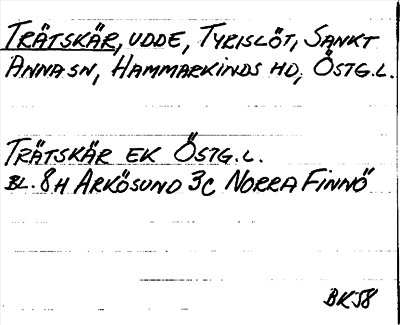 TRÄTSKÄR, UDDE, TYRISLÖT, SANKT
ANNA SN, HAMMARKINDS HD, ÖSTG.L.
TRÄTSKÄR EK ÖSTG.L.
BL. 8H ARKÖSUND 3C NORRA FINNÖ
BK58